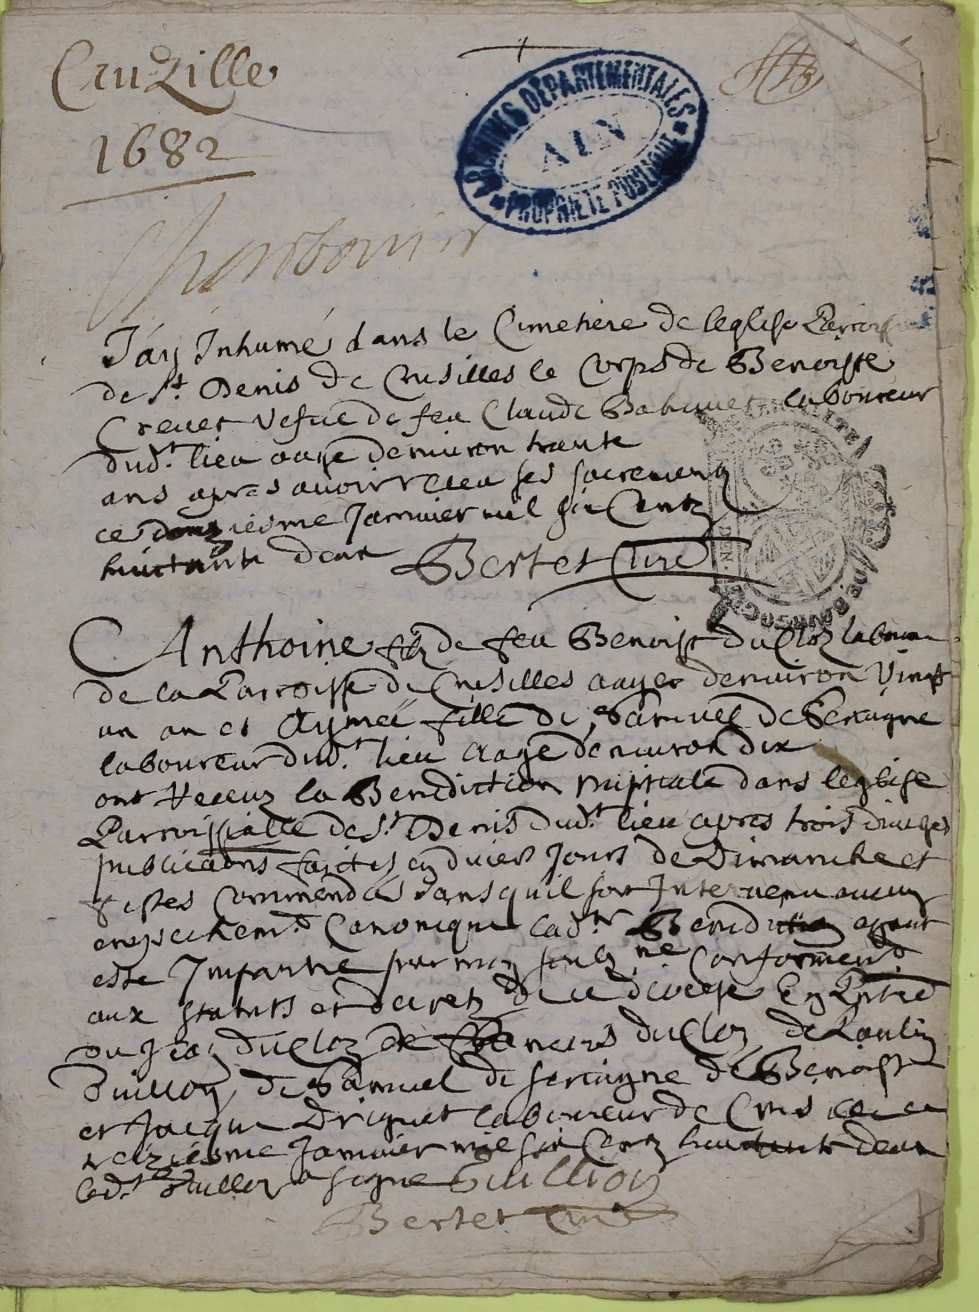 Cruzille
1682
ARCHIVES DÉPARTEMENTALES
AIN
PROPRIÉTÉ PUBLIQUE
Charbonier
J'ay Inhumé dans le Cimetiere de leglise Parrois
de st Denis de Crusilles le Corps de Benoiste
Crevet vefue de feu Claude laboureur
dudt lieu aage denuiron trante
ans apres auoir receu ses sacremens
ce iesme Januier mil six Centz
huictante deux Bertet Curé
DE BOURGOGNE
Anthoine filz de feu Benoist du Cloz labour
de la Parroisse de Crusilles aagez denuiron vingt
un an et Aymeé fille de Samuel de Seruigne
laboureur dudt lieu aagé denuiron dix
ont receuz la Benediction nuptiale dans leglise
Parroissialle de St Denis dudt lieu apres trois diuerses
publications faictes en diuers Jours de Dimanche et
festes Commendés sans quil soit Interuenu aucun
empechemt Canonique ladte Benediction ayant
esté Impartie par moy soubzne Conformemt
aux statuts et decretz de ce diocese En Pntce
du Jean duCloz de francois duCloz de Paulin
Puillon, de Samuel de seruigne de Benoist
et Jacque Driguet laboureur de Crusilles ce
treiziesme Januier mil six Centz huictante deux
ledt Puillon a signé Puillion
Bertet Curé